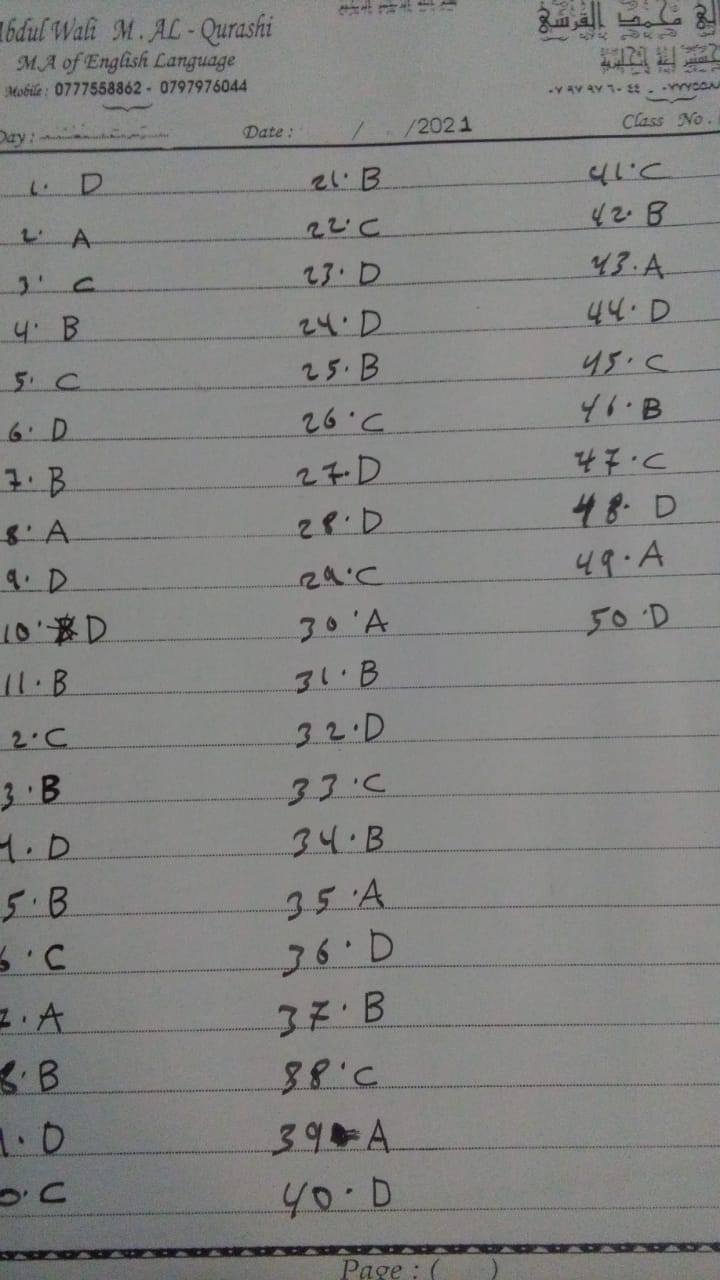 Abdul Wali M. AL - Qurashi
محمد القرشي
M.A of English Language
Mobile: 0777558862 - 0797976044
٠٧٩٧٩٧٦٠٤٤ - ٠٧٧٧٥٥٨
Day: Date: / /2021 Class No.
1. D 21. B 41. C
2. A 22. C 42. B
3. C 23. D 43. A
4. B 24. D 44. D
5. C 25. B 45. C
6. D 26. C 46. B
7. B 27. D 47. C
8. A 28. D 48. D
9. D 29. C 49. A
10. D 30. A 50. D
11. B 31. B
2. C 32. D
3. B 33. C
4. D 34. B
5. B 35. A
6. C 36. D
7. A 37. B
8. B 38. C
9. D 39 A
0. C 40. D
Page: ( )